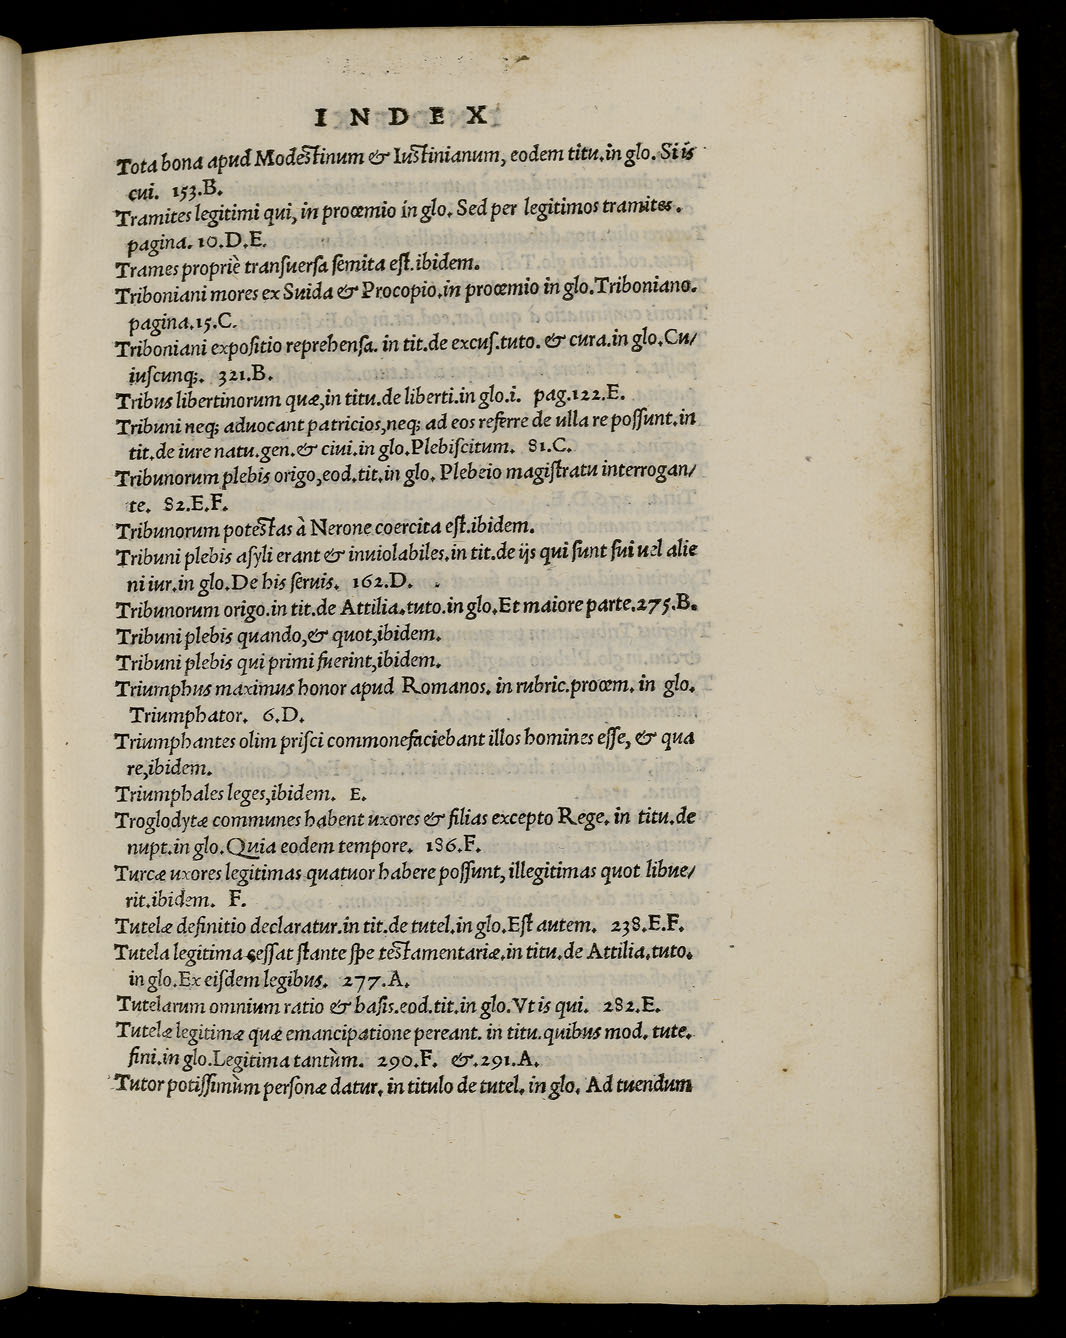 INDEX
Tota bona apud Modestinum & Iustinianum, eodem titu.in glo. Si is
cui. 153.B.
Tramites legitimi qui, in prooemio in glo. Sed per legitimos tramites.
pagina. 10.D.E.
Trames propriè transuersa semita est.ibidem.
Triboniani mores ex Suida & Procopio.in prooemio in glo.Triboniano.
pagina.15.C.
Triboniani expositio reprehensa. in tit.de excus.tuto. & cura.in glo.Cu/
iuscunq;. 321.B.
Tribus libertinorum quæ,in titu.de liberti.in glo.i. pag.122.E.
Tribuni neq; aduocant patricios,neq; ad eos referre de ulla re possunt.in
tit.de iure natu.gen.& ciui.in glo.Plebiscitum. 81.C.
Tribunorum plebis origo,eod.tit.in glo. Plebeio magistratu interrogan/
te. 82.E.F.
Tribunorum potestas à Nerone coercita est.ibidem.
Tribuni plebis asyli erant & inuiolabiles.in tit.de ijs qui sunt sui uel alie
ni iur.in glo.De his seruis. 162.D.
Tribunorum origo.in tit.de Attilia.tuto.in glo.Et maiore parte.275.B.
Tribuni plebis quando,& quot,ibidem.
Tribuni plebis qui primi fuerint,ibidem.
Triumphus maximus honor apud Romanos. in rubric.prooem. in glo.
Triumphator. 6.D.
Triumphantes olim prisci commonefaciebant illos homines esse, & qua
re,ibidem.
Triumphales leges,ibidem. E.
Troglodytæ communes habent uxores & filias excepto Rege. in titu.de
nupt.in glo.Quia eodem tempore. 186.F.
Turcæ uxores legitimas quatuor habere possunt, illegitimas quot libue/
rit.ibidem. F.
Tutelæ definitio declaratur.in tit.de tutel.in glo.Est autem. 238.E.F.
Tutela legitima cessat stante spe testamentariæ.in titu.de Attilia.tuto.
in glo.Ex eisdem legibus. 277.A.
Tutelarum omnium ratio & basis.eod.tit.in glo.Vt is qui. 282.E.
Tutelæ legitimæ quæ emancipatione pereant. in titu.quibus mod. tute.
fini.in glo.Legitima tantùm. 290.F. &.291.A.
Tutor potissimùm personæ datur. in titulo de tutel. in glo. Ad tuendum